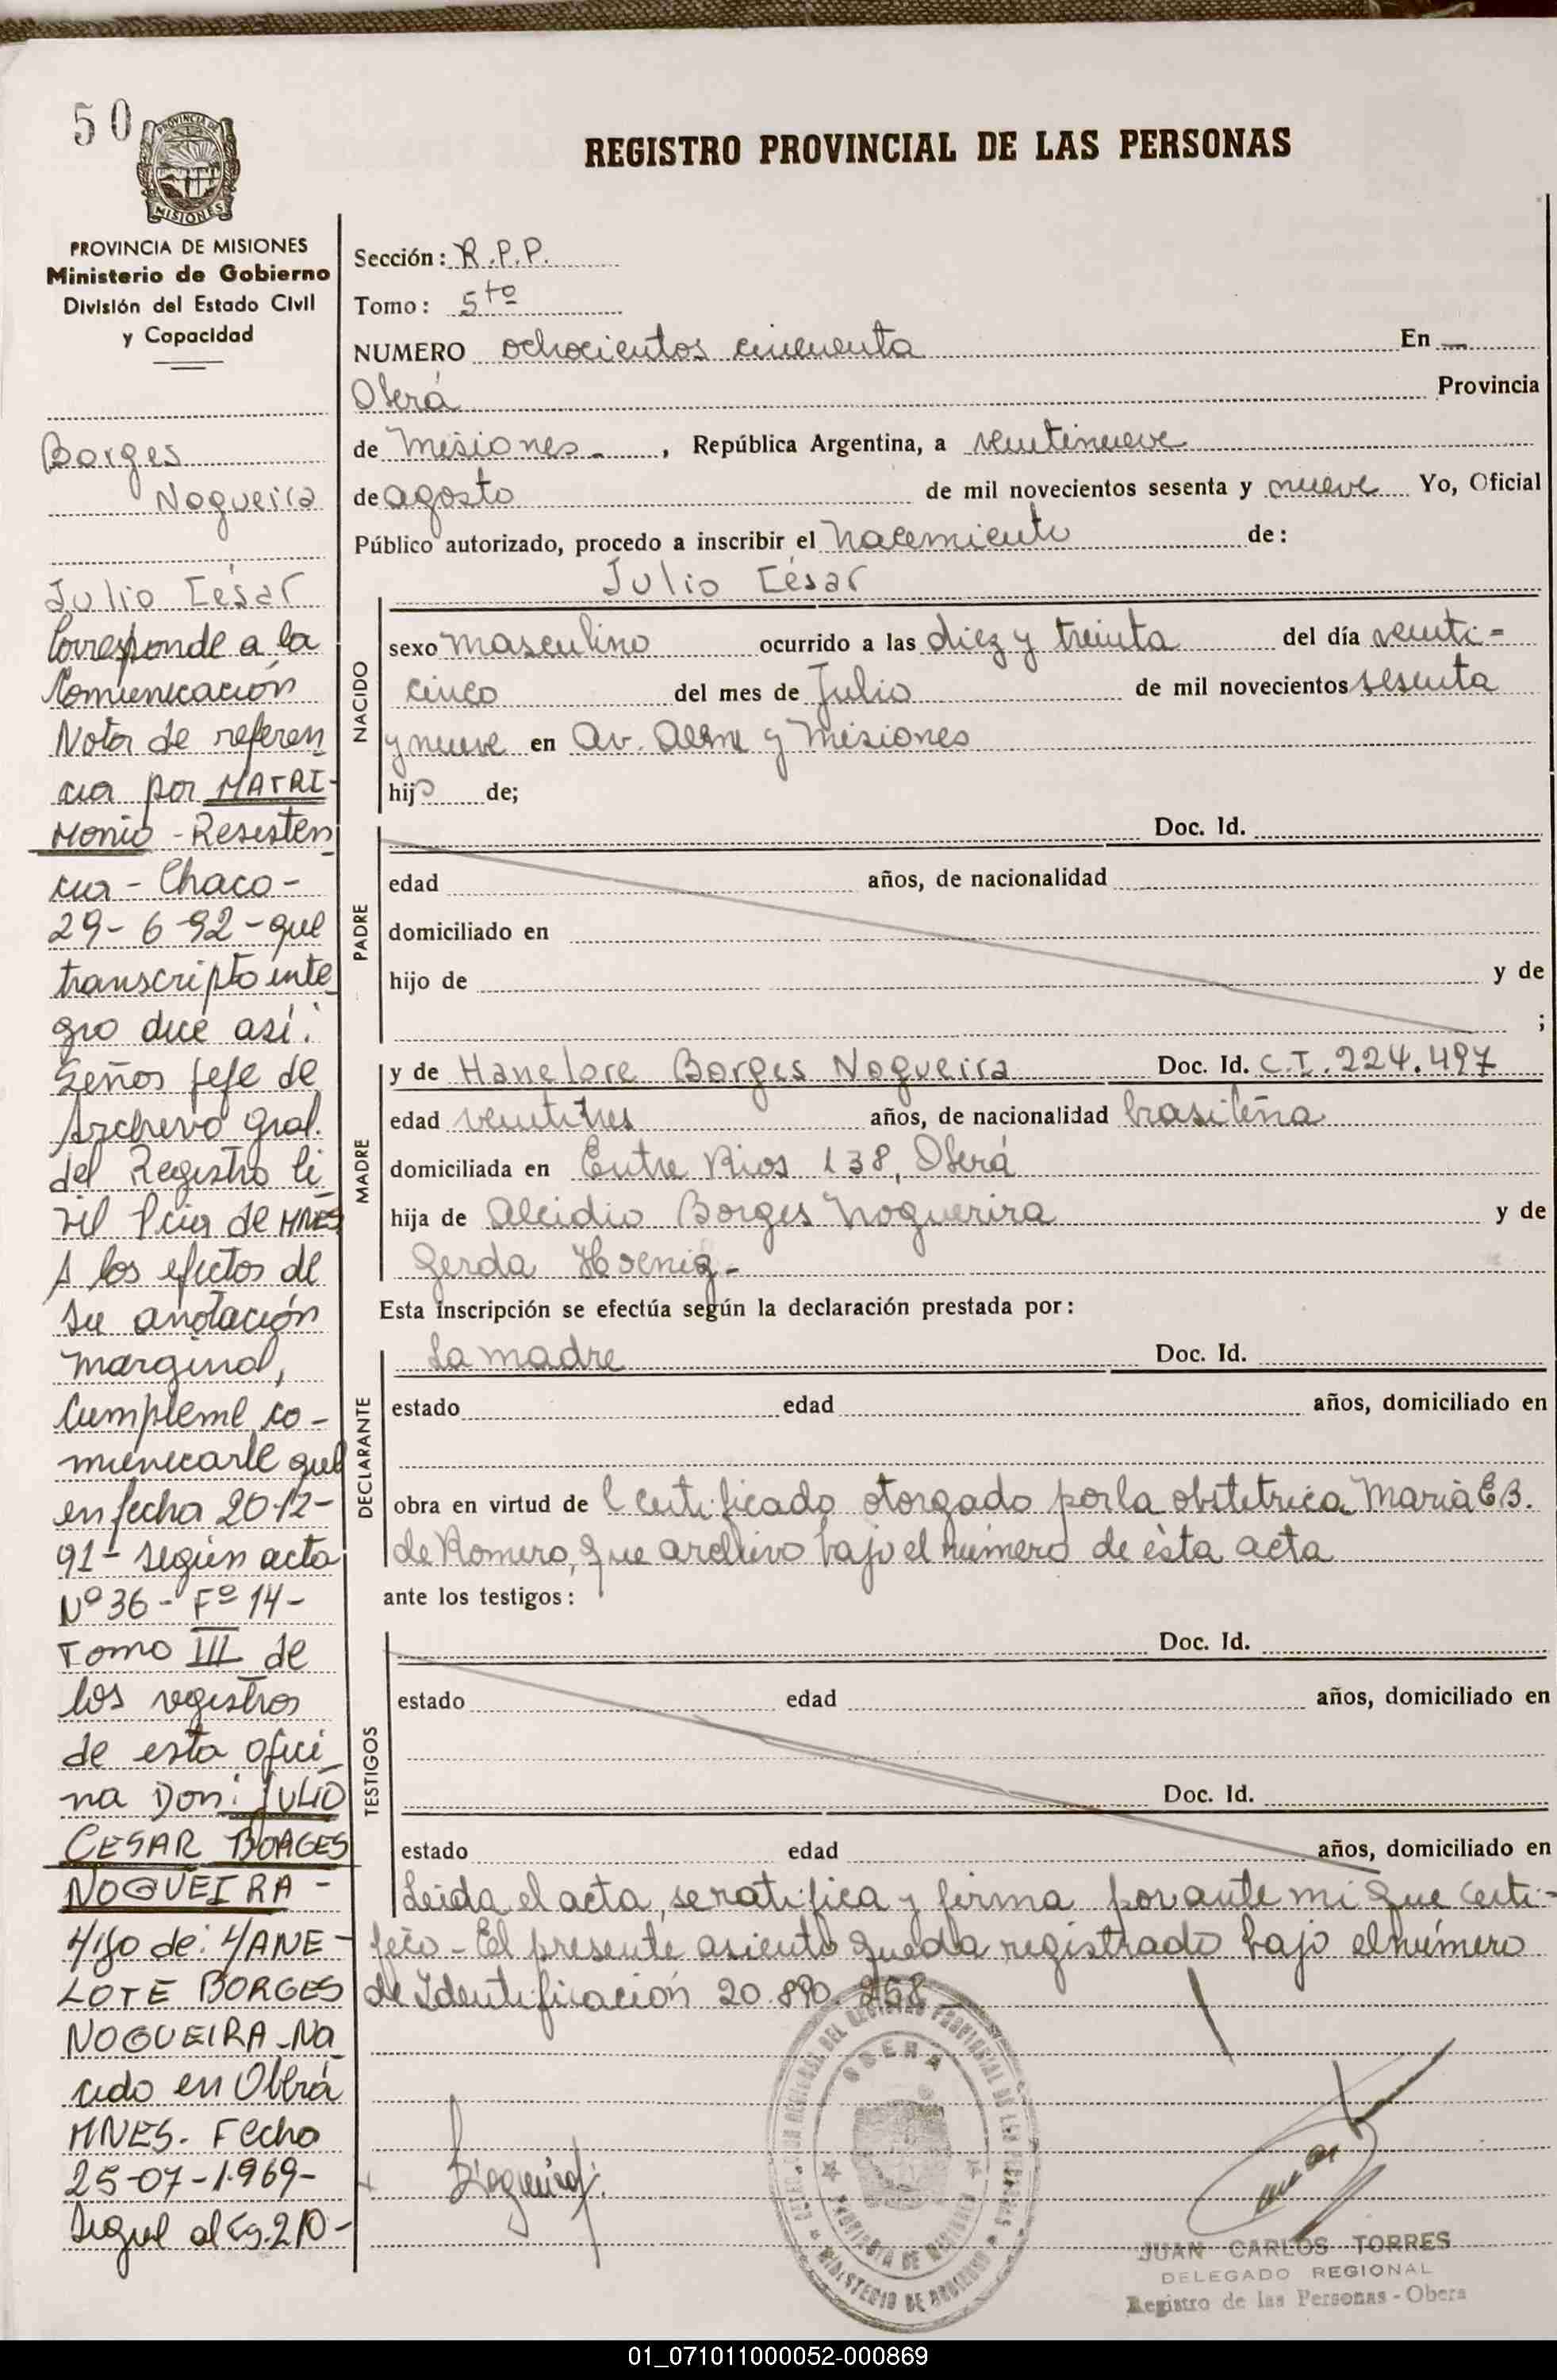 50
PROVINCIA DE
MISIONES
REGISTRO PROVINCIAL DE LAS PERSONAS
PROVINCIA DE MISIONES
Ministerio de Gobierno
División del Estado Civil
y Capacidad
Borges
Nogueira
Julio César
Corresponde a la
Comunicación
Nota de referen
cia por MATRI-
MONIO - Resisten
cia - Chaco -
29-6-92 - que
transcripto inte
gro dice así:
Señor Jefe de
Archivo Gral.
del Registro Ci
vil Pcia de MNES
A los efectos de
su anotación
marginal,
Cumpleme co-
municarle que
en fecha 20-12-
91 - según acta
Nº 36 - Fº 14 -
Tomo III de
los registros
de esta ofici
na Don: JULIO
CESAR BORGES
NOGUEIRA -
Hijo de: HANE-
LOTE BORGES
NOGUEIRA - Na
cido en Oberá
MNES. Fecha
25-07-1.969-
Sigue al Fº. 210-
Sección: R.P.P.
Tomo: 5to
NUMERO ochocientos cincuenta En —
Oberá Provincia
de Misiones - , República Argentina, a veintinueve
de agosto de mil novecientos sesenta y nueve Yo, Oficial
Público autorizado, procedo a inscribir el Nacimiento de:
Julio César
NACIDO
sexo masculino ocurrido a las diez y treinta del día veinti-
cinco del mes de Julio de mil novecientos sesenta
y nueve en Av. Alem y Misiones
hijo de;
PADRE
Doc. Id.
edad años, de nacionalidad
domiciliado en
hijo de y de
;
MADRE
y de Hanelore Borges Nogueira Doc. Id. C.I. 224.497
edad veintitres años, de nacionalidad brasileña
domiciliada en Entre Rios 138, Oberá
hija de Alcidio Borges Noguerira y de
Gerda Hoenig -
Esta inscripción se efectúa según la declaración prestada por:
DECLARANTE
La madre Doc. Id.
estado edad años, domiciliado en
obra en virtud de l certificado otorgado por la obstetrica Maria E B.
de Romero, que archivo bajo el número de ésta acta
ante los testigos:
TESTIGOS
Doc. Id.
estado edad años, domiciliado en
Doc. Id.
estado edad años, domiciliado en
Leida el acta, se ratifica y firma por ante mi que certi-
fico - El presente asiento queda registrado bajo el número
de Identificación 20.890.258 -
OBERA
PROVINCIA DE MISIONES
MINISTERIO DE GOBIERNO
JUAN CARLOS TORRES
DELEGADO REGIONAL
Registro de las Personas - Obera
01_071011000052-000869